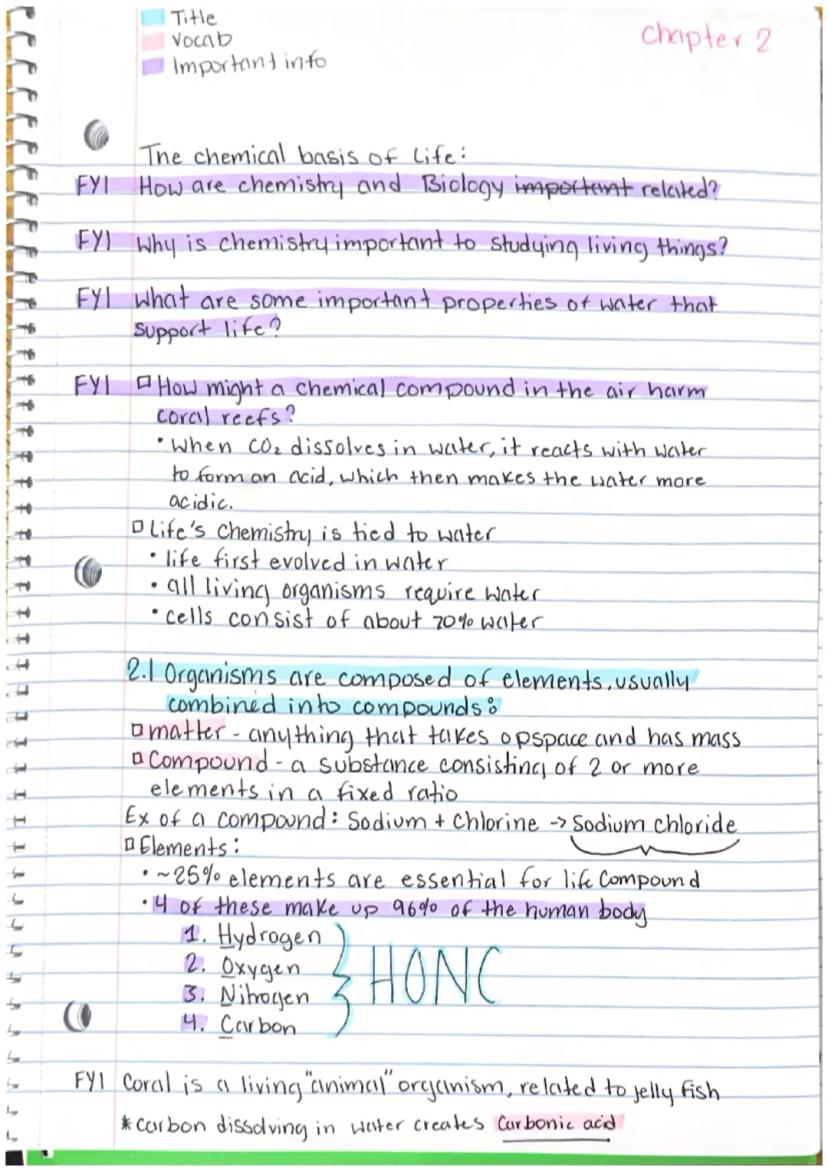 Title
Vocab
Important info
Chapter 2
The chemical basis of Life:
FYI How are chemistry and Biology important related?
FYI Why is chemistry important to studying living things?
FYI What are some important properties of water that
support life?
FYI How might a chemical compound in the air harm
coral reefs?
• when CO₂ dissolves in water, it reacts with water
to form an acid, which then makes the water more
acidic.
Life's chemistry is tied to water
• life first evolved in water
• all living organisms require water
• cells consist of about 70% water
2.1 Organisms are composed of elements, usually
combined into compounds:
matter - anything that takes opspace and has mass
Compound - a substance consisting of 2 or more
elements in a fixed ratio
Ex of a compound: Sodium + Chlorine -> Sodium chloride
Elements:
• ~25% elements are essential for life Compound
• 4 of these make up 96% of the human body
1. Hydrogen
2. Oxygen
3. Nitrogen
4. Carbon
HONC
FYI Coral is a living "animal" organism, related to jelly fish
*carbon dissolving in water creates Carbonic acid